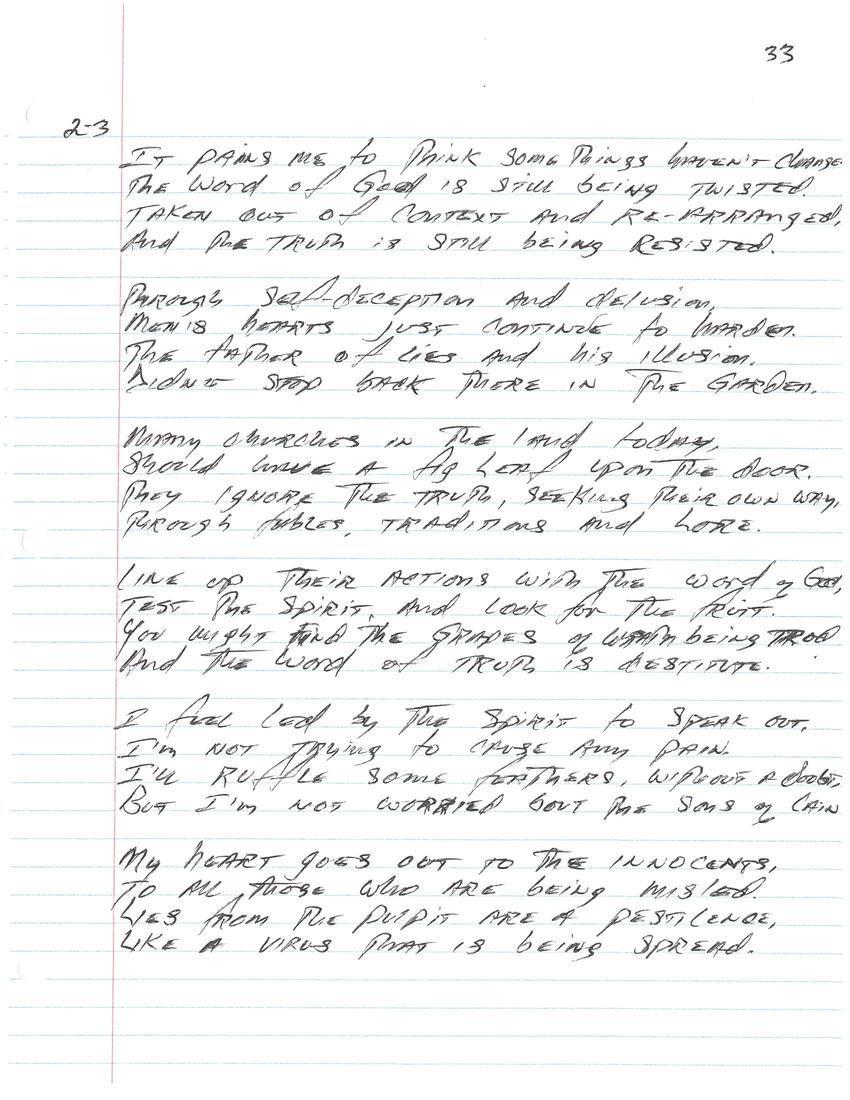 33
2-3
IT PAINS ME to Think Some Things HAVEN'T Change
The Word of God is STill BEING TWISTED.
TAKEN OUT of CONTEXT And RE-ARRANGED,
And The TRUTh is STill being RESISTED.
Through Self-deception And delusion,
MEN'S hEARTS JUST CONTINUE to hARDEN.
The fATHER of LIES And his Illusion.
DIDN'T STOP bACK THERE IN The GARDEN.
MANY ChURCHES IN The land todAy,
Should hAVE A fig LEAf upon The dOOR.
They IGNORE The TRUTh, SEEKING ThEIR OWN WAY,
Through fables, TRADITIONS And LORE.
LINE up ThEIR ACTIONS WITh The Word of God,
TEST The SPIRIT, And LOOK for The fRUIT.
You might find The GRAPES of WRATh being TROD
And The Word of TRUTh is dESTITUTE.
I feel Led by The SPIRIT to SPEAK OUT.
I'm NOT TRYING to CAUSE Any PAIN.
I'll RUffLE SOME fEATHERS, WITHOUT A doubt,
BUT I'm NOT WORRIED bout The Sons of CAIN
My hEART goes OUT TO The INNOCENTS,
TO All those who ARE being misled.
LIES from The Pulpit ARE A PESTILENCE,
LIKE A VIRUS ThAT is being SPREAD.